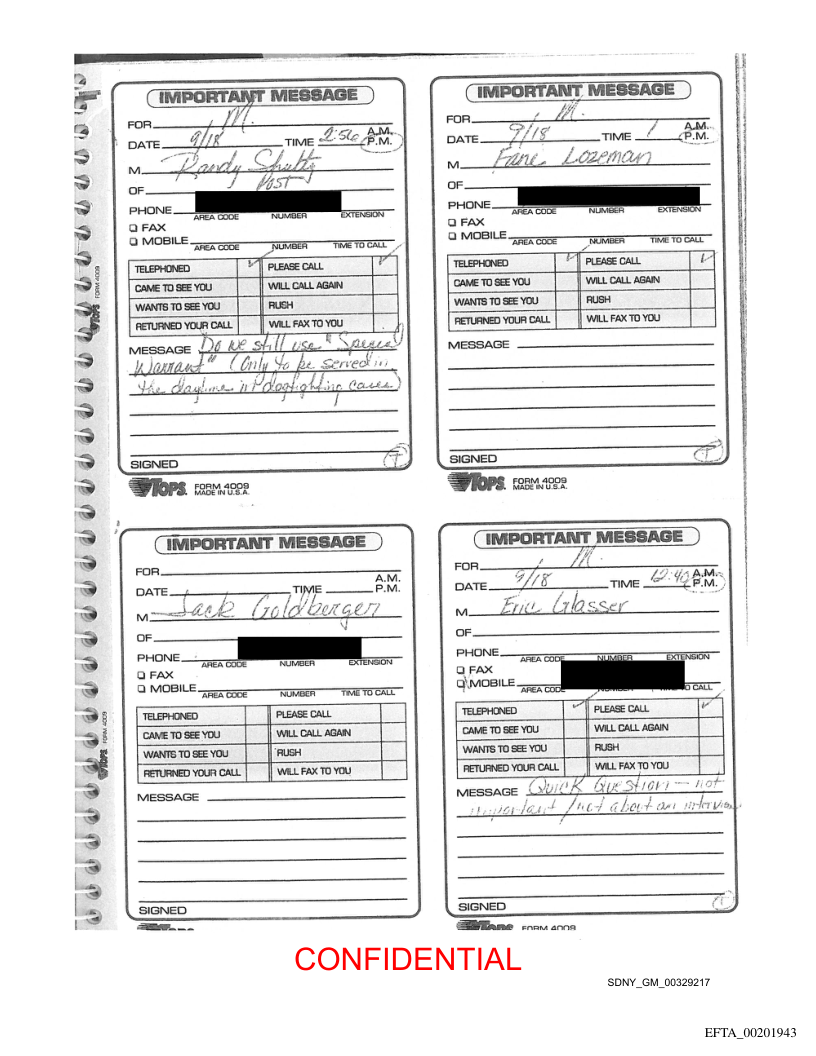 IMPORTANT MESSAGE
FOR M.
DATE 9/18 TIME 2:56 A.M. P.M.
M Randy Shultz
OF Post
PHONE
AREA CODE NUMBER EXTENSION
FAX
MOBILE
AREA CODE NUMBER TIME TO CALL
TELEPHONED ✓ PLEASE CALL ✓
CAME TO SEE YOU WILL CALL AGAIN
WANTS TO SEE YOU RUSH
RETURNED YOUR CALL WILL FAX TO YOU
MESSAGE Do we still use "Special
Warrant" (Only to be served in
the daytime in dogfighting cases)
SIGNED T
TOPS FORM 4009
MADE IN U.S.A.
IMPORTANT MESSAGE
FOR M.
DATE 9/18 TIME 1 A.M. P.M.
M Fane Lozeman
OF
PHONE
AREA CODE NUMBER EXTENSION
FAX
MOBILE
AREA CODE NUMBER TIME TO CALL
TELEPHONED ✓ PLEASE CALL ✓
CAME TO SEE YOU WILL CALL AGAIN
WANTS TO SEE YOU RUSH
RETURNED YOUR CALL WILL FAX TO YOU
MESSAGE
SIGNED T
TOPS FORM 4009
MADE IN U.S.A.
TOPS FORM 4009
IMPORTANT MESSAGE
FOR
DATE TIME A.M. P.M.
M Jack Goldberger
OF
PHONE
AREA CODE NUMBER EXTENSION
FAX
MOBILE
AREA CODE NUMBER TIME TO CALL
TELEPHONED PLEASE CALL
CAME TO SEE YOU WILL CALL AGAIN
WANTS TO SEE YOU RUSH
RETURNED YOUR CALL WILL FAX TO YOU
MESSAGE
SIGNED
TOPS
IMPORTANT MESSAGE
FOR M.
DATE 9/18 TIME 12:40 A.M. P.M.
M Eric Glasser
OF
PHONE
AREA CODE NUMBER EXTENSION
FAX
MOBILE
AREA CODE TO CALL
TELEPHONED ✓ PLEASE CALL ✓
CAME TO SEE YOU WILL CALL AGAIN
WANTS TO SEE YOU RUSH
RETURNED YOUR CALL WILL FAX TO YOU
MESSAGE Quick Question - not
important / not about an interview
SIGNED T
TOPS FORM 4009
TOPS FORM 4009
CONFIDENTIAL
SDNY_GM_00329217
EFTA_00201943